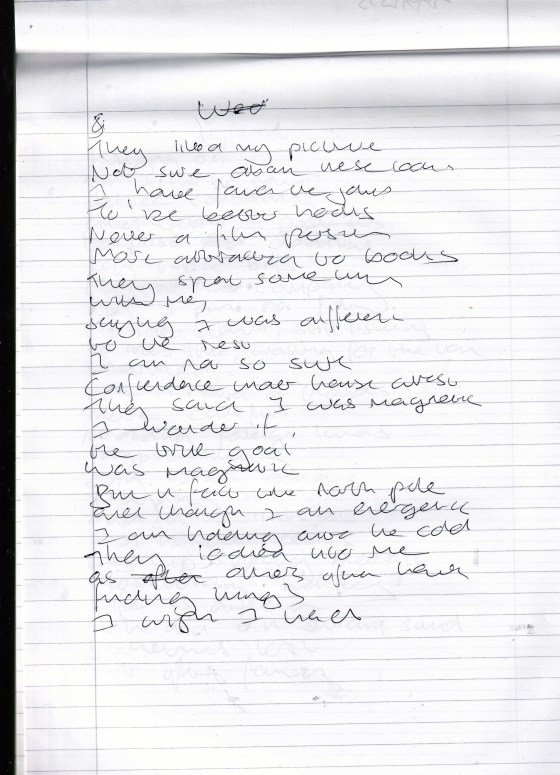 They liked my picture
Not sure about these loans
I have found the jams
To be better
Never a film person
More attracted to books
They spent some time
with me,
saying I was different
to the rest
I am not so sure
Confidence under house arrest
They said I was magnetic
I wonder if
the little goat
was magnetic
But I face the north pole
and though I am energetic
I am holding onto the cold
They looked into me
as others often have
finding things
I wish I